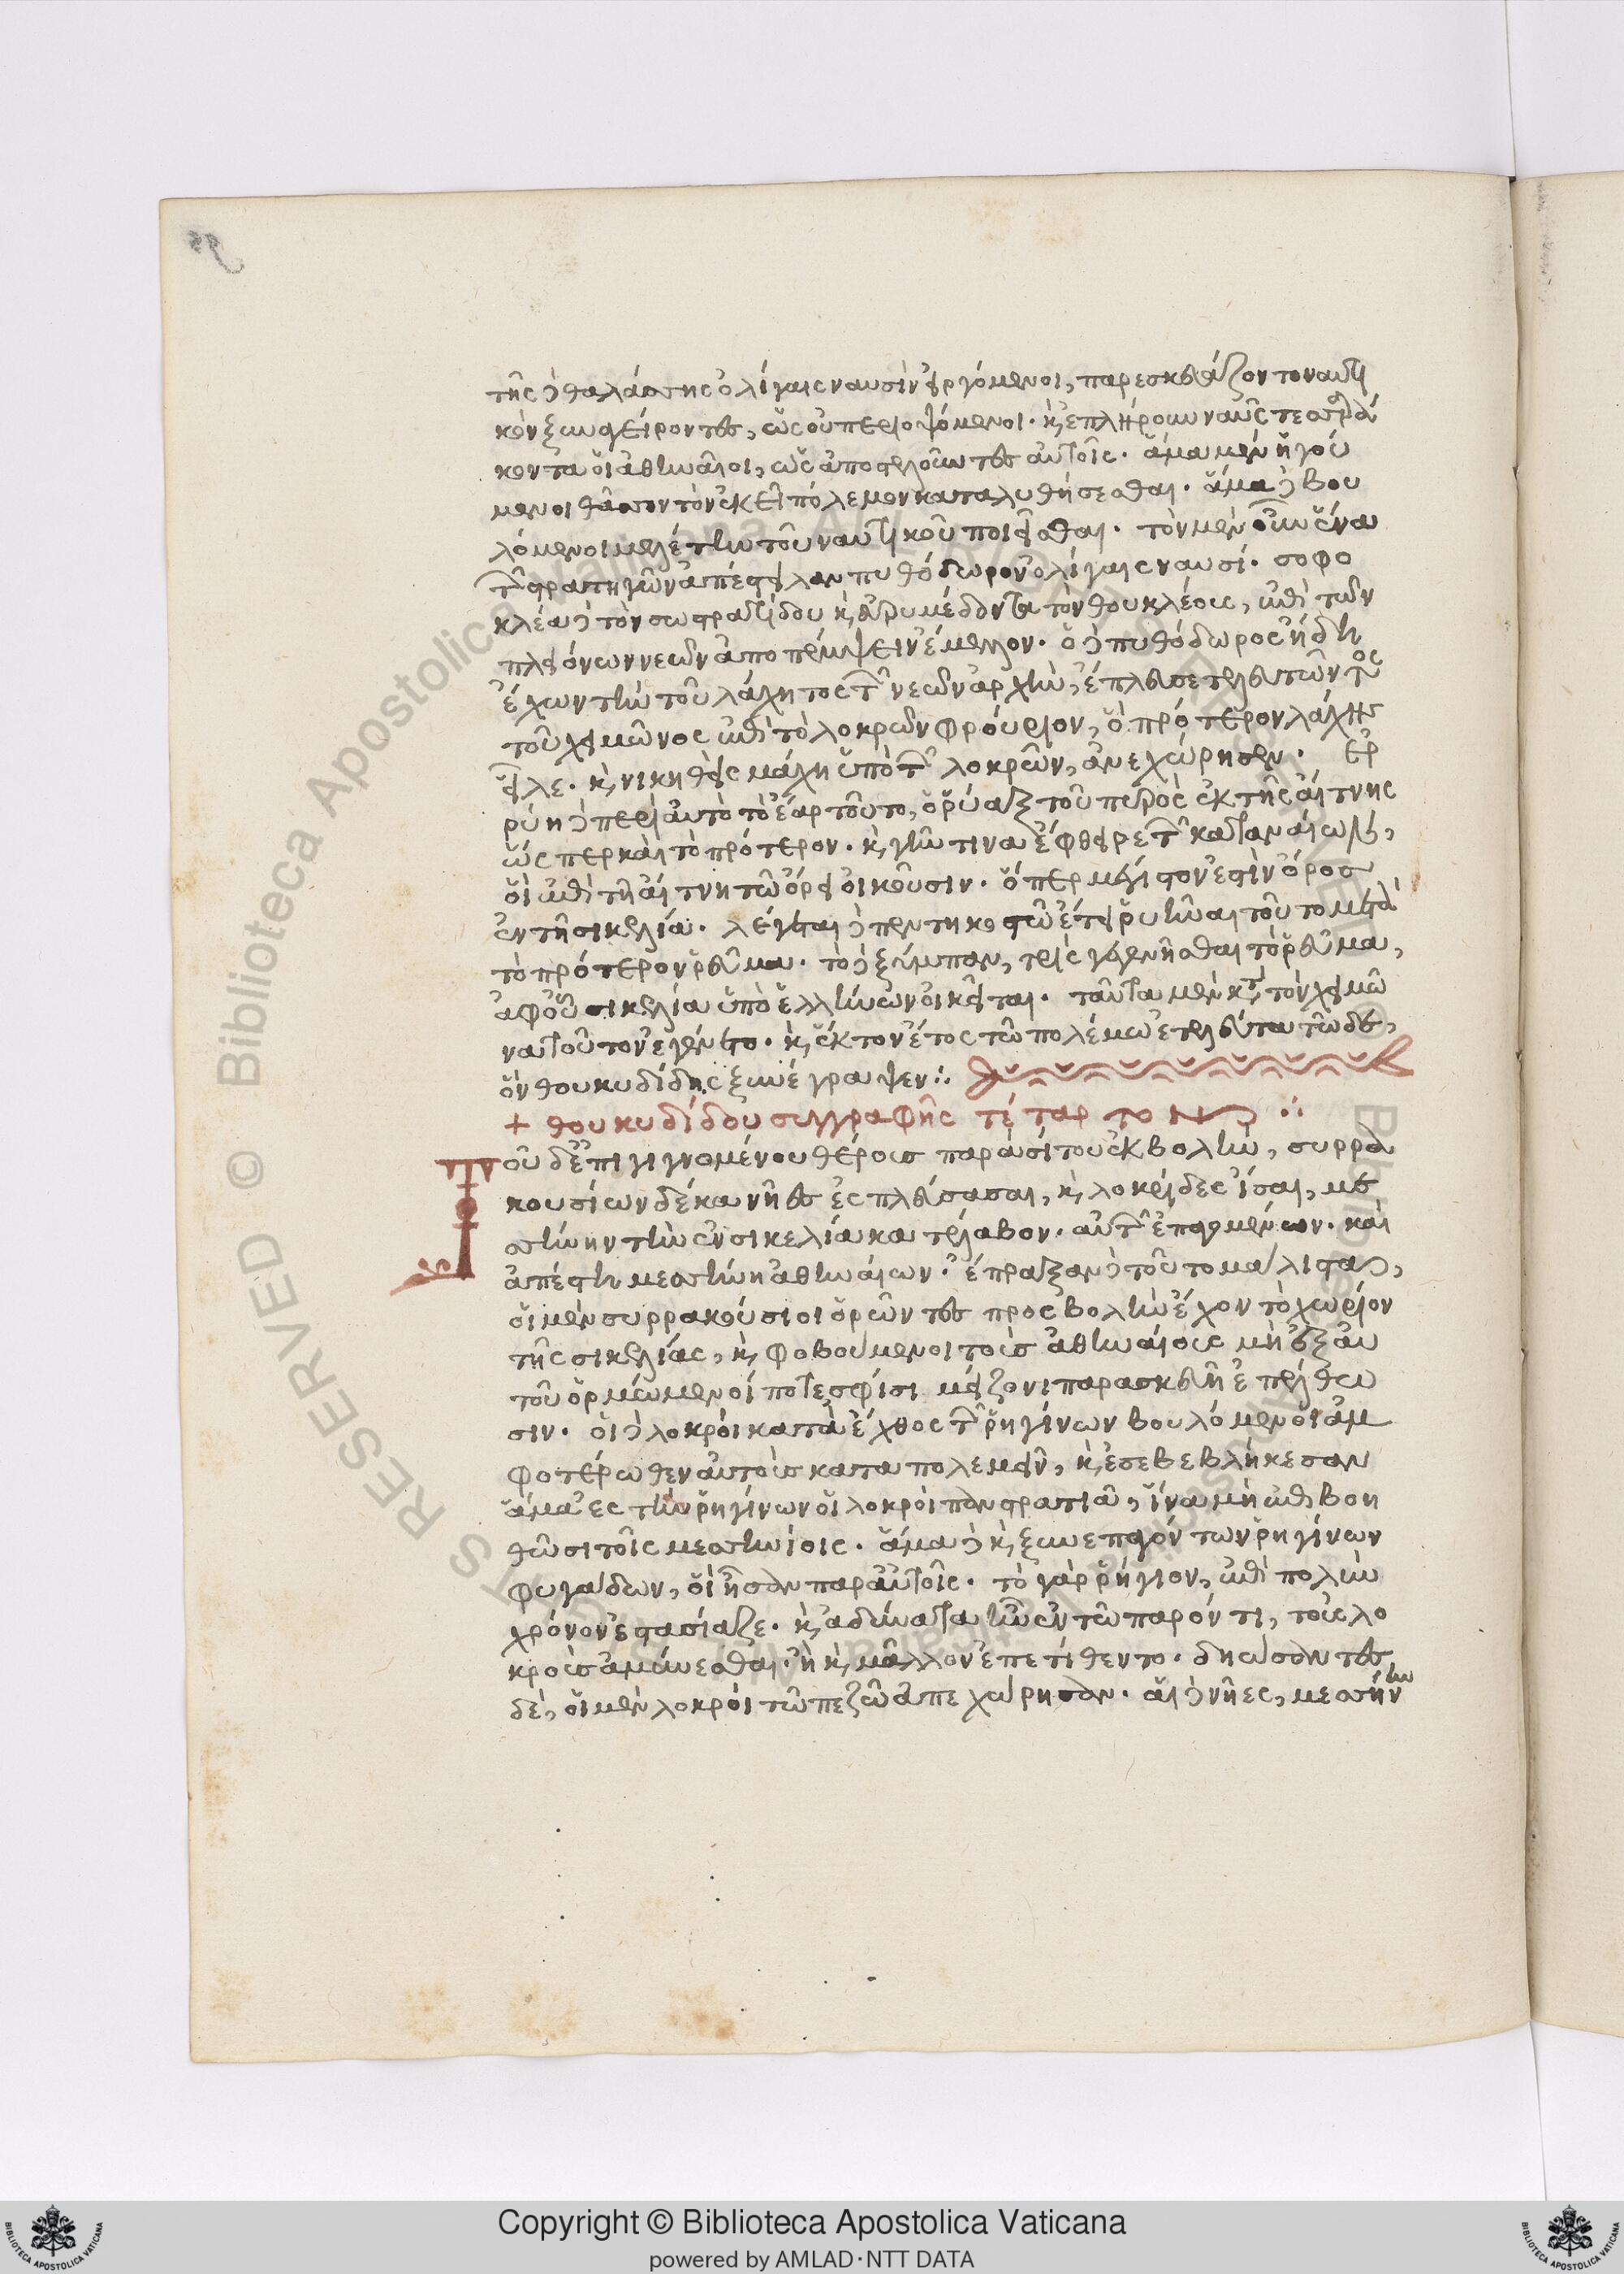 τῆς δὲ θαλάσσης ὀλίγαις ναυσὶν εἰργόμενοι, παρεσκευάζοντο ναυτι
κὸν ξυναγείροντες, ὡς οὐ περιοψόμενοι. καὶ ἐπλήρουν ναῦς τεσσαρά
κοντα οἱ ἀθηναῖοι, ὡς ἀποστελοῦντες αὐτοῖς. ἅμα μὲν ἡγού
μενοι θᾶσσον τὸν ἐκεῖ πόλεμον καταλυθήσεσθαι. ἅμα δὲ βου
λόμενοι μελέτην τοῦ ναυτικοῦ ποιεῖσθαι. τὸν μὲν οὖν ἕνα
τῶν στρατηγῶν ἀπέστειλαν πυθόδωρον ὀλίγαις ναυσί. σοφο
κλέα δὲ τὸν σωστρατίδου καὶ εὐρυμέδοντα τὸν θουκλέους, ἐπὶ τῶν
πλειόνων νεῶν ἀποπέμψειν ἔμελλον. ὁ δὲ πυθόδωρος ἤδη
ἔχων τὴν τοῦ λάχητος τῶν νεῶν ἀρχὴν, ἔπλευσε τελευτῶντος
τοῦ χειμῶνος ἐπὶ τὸ λοκρῶν φρούριον, ὃ πρότερον λάχης
εἷλε. καὶ νικηθεὶς μάχη ὑπὸ τῶν λοκρῶν, ἀνεχώρησεν. ἐρ
ρύη δὲ περὶ αὐτὸ τὸ ἔαρ τοῦτο, ὁ ῥύαξ τοῦ πυρὸς ἐκ τῆς αἴτνης
ὥσπερ καὶ τὸ πρότερον. καὶ γῆν τινα ἔφθειρε τῶν καταναίων,
οἳ ἐπὶ τῇ αἴτνη τῶ ὄρει οἰκοῦσιν. ὅπερ μέγιστον ἐστὶν ὄρος
ἐν τῇ σικελία. λέγεται δὲ πεντηκοστῶ ἔτει ῥυῆναι τοῦτο μετὰ
τὸ πρότερον ῥεῦμα. τὸ δὲ ξύμπαν, τρὶς γεγενῆσθαι τὸ ῥεῦμα,
ἀφ οὗ σικελία ὑπὸ ἑλλήνων οἰκεῖται. ταῦτα μὲν κατὰ τὸν χειμῶ
να τοῦτον ἐγένετο. καὶ ἕκτον ἔτος τῶ πολέμω ἐτελεύτα τῶδε,
ὃν θουκυδίδης ξυνέγραψεν:.
+ θουκυδίδου συγγραφῆς τέταρτον :.
Τοῦ δ ἐπιγιγνομένου θέρους παρὰ σίτου ἐκβολὴν, συρρα
κουσίων δέκα νῆες ἐσπλεύσασαι, καὶ λοκρίδες ἴσαι, μεσ
σήνην τὴν ἐν σικελία κατέλαβον. αὐτῶν ἐπαγομένων. καὶ
ἀπέστη μεσσήνη ἀθηναίων. ἔπραξαν δὲ τοῦτο μάλιστα,
οἱ μὲν συρρακούσιοι ὁρῶντες προσβολὴν ἔχον τὸ χωρίον
τῆς σικελίας, καὶ φοβούμενοι τοὺς ἀθηναίους μὴ ἐξ αὐ
τοῦ ὁρμώμενοί ποτε σφίσι μείζονι παρασκευῆ ἐπέλθω
σιν. οἱ δὲ λοκροὶ κατὰ ἔχθος τῶν ῥηγίνων βουλόμενοι ἀμ
φοτέρωθεν αὐτοὺς καταπολεμεῖν, καὶ ἐσεβεβλήκεσαν
ἅμα ἐς τὴν ῥηγίνων οἱ λοκροὶ πανστρατιᾶ, ἵνα μὴ ἐπιβοη
θῶσι τοῖς μεσσηνίοις. ἅμα δὲ καὶ ξυνεπαγόντων ῥηγίνων
φυγάδων, οἳ ἦσαν παρ αὐτοῖς. τὸ γὰρ ῥήγιον, ἐπὶ πολὺν
χρόνον ἐστασίαζε. καὶ ἀδύνατα ἦν ἐν τῶ παρόντι, τοὺς λο
κροὺς ἀμύνεσθαι. ᾗ καὶ μᾶλλον ἐπετίθεντο. δηώσαντες
δὲ, οἱ μὲν λοκροὶ τῶ πεζῶ ἀπεχώρησαν. αἱ δὲ νῆες, μεσσήνην